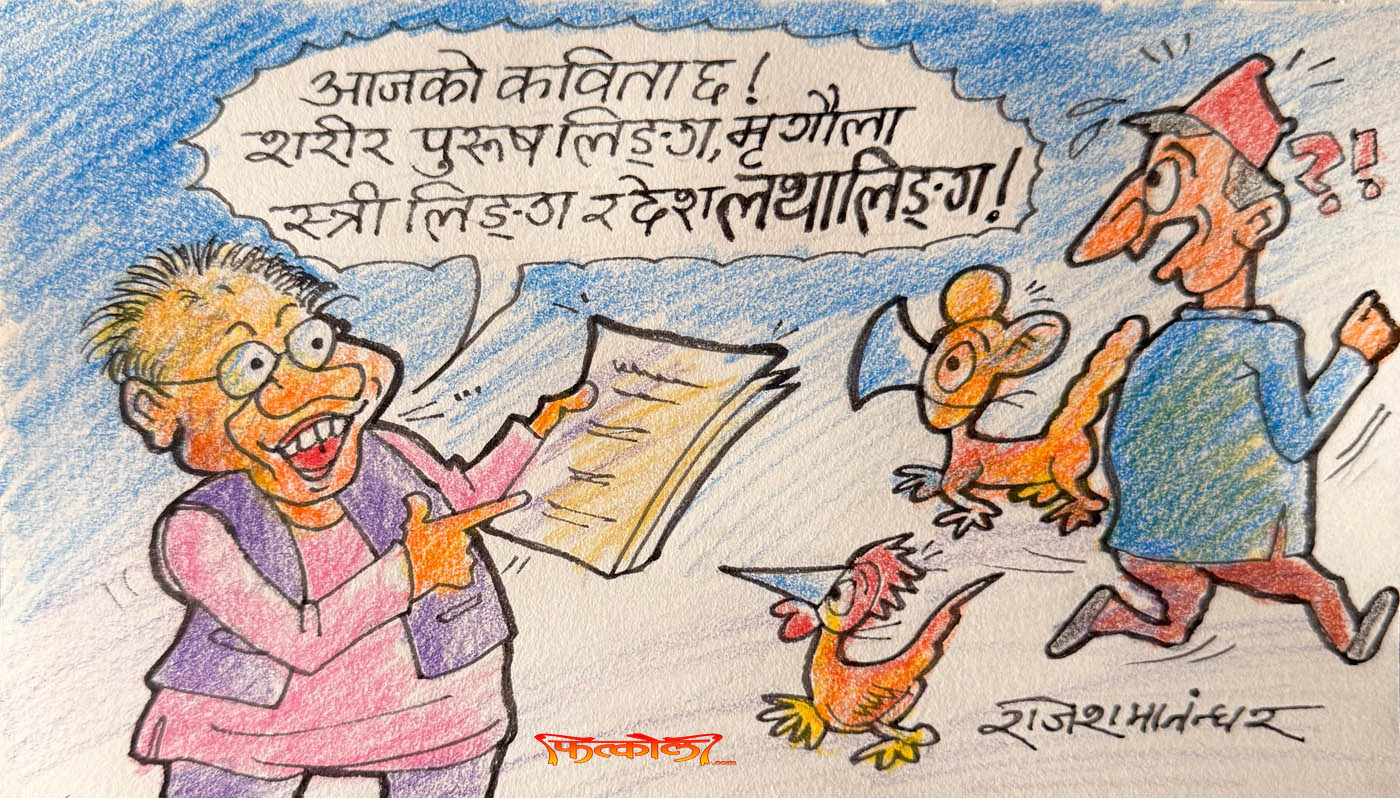 आजको कविता छ!
शरीर पुरूष लिङ्ग, मृगौला
स्त्री लिङ्ग र देश लथालिङ्ग!
?!
राजेश मानन्धर
फित्कौली.com